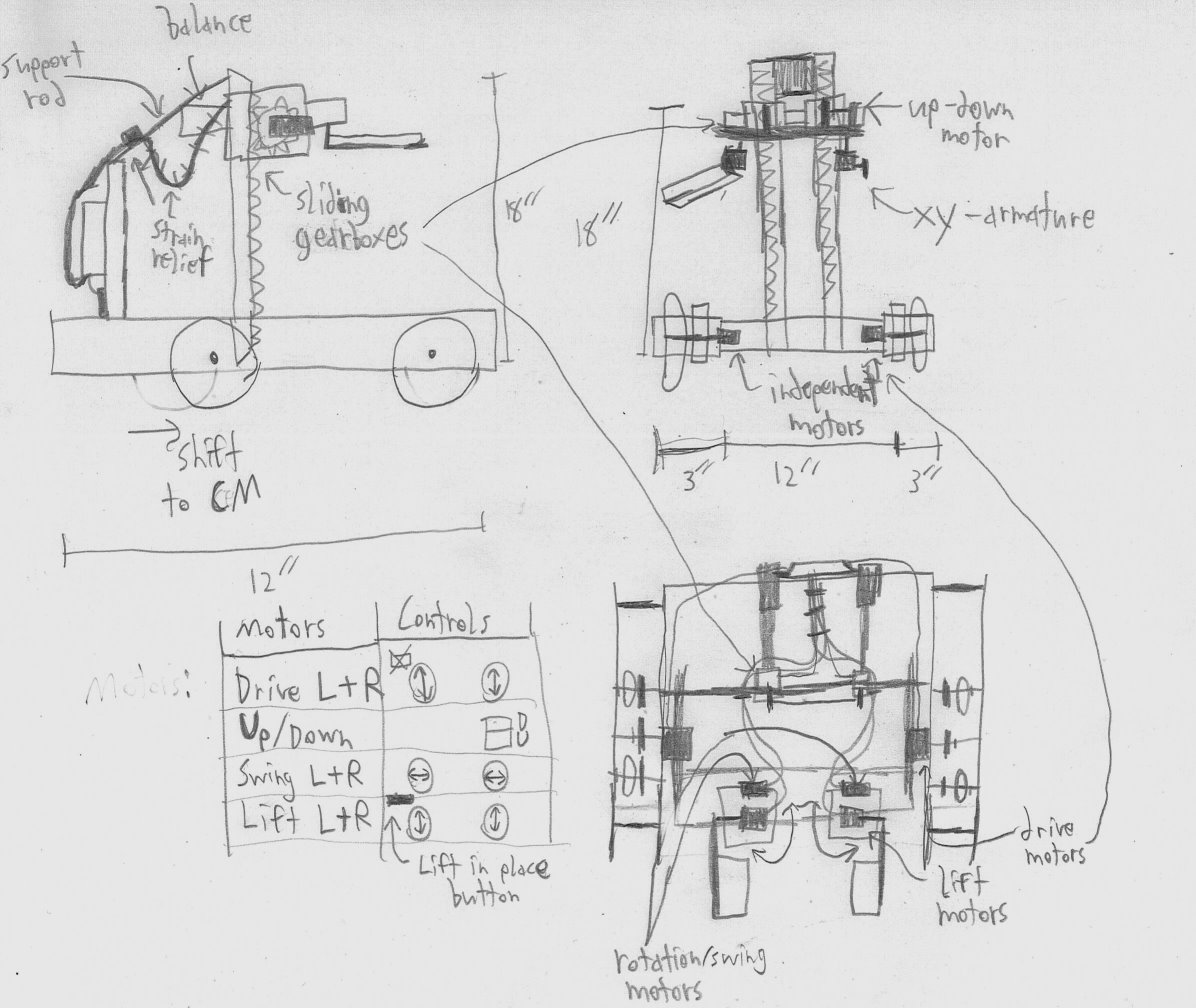 balance
support
rod
strain
relief
sliding
gearboxes
18"
shift
to CM
12"
up-down
motor
xy-armature
18"
independent
motors
3"
12"
3"
Motors:
Motors
Controls
Drive L+R
Up/Down
Swing L+R
Lift L+R
Lift in place
button
drive
motors
lift
motors
rotation/swing
motors